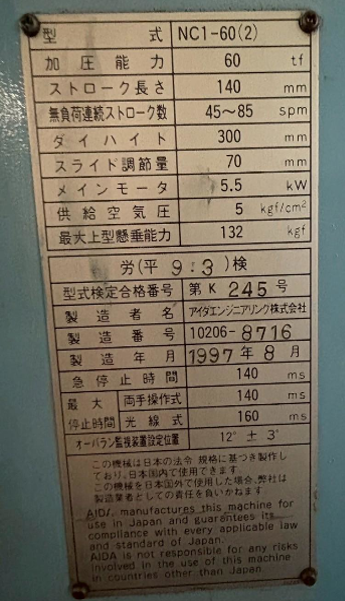 型式 NC1-60(2)
加圧能力 60 tf
ストローク長さ 140 mm
無負荷連続ストローク数 45~85 spm
ダイハイト 300 mm
スライド調節量 70 mm
メインモータ 5.5 kW
供給空気圧 5 kgf/cm²
最大上型懸垂能力 132 kgf
労(平9:3)検
型式検定合格番号 第K 245号
製造者名 アイダエンジニアリング株式会社
製造番号 10206-8716
製造年月 1997年8月
急停止時間 140 ms
最大停止時間 両手操作式 140 ms
光線式 160 ms
オーバラン監視装置設定位置 12° ± 3°
この機械は日本の法令 規格に基づき製作し
ており、日本国内で使用できます。
この機械を日本国外で使用した場合、弊社は
製造業者としての責任を負いかねます
AIDA manufactures this machine for
use in Japan and guarantees its
compliance with every applicable law
and standard of Japan.
AIDA is not responsible for any risks
involved in the use of this machine
in countries other than Japan.